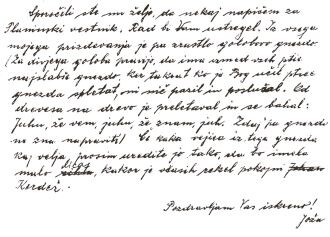 Sporočili ste mi željo, da nekaj napišem za
Planinski vestnik. Rad bi Vam ustregel. Iz vsega
mojega prizadevanja je pa zrastlo golobovo gnezdo.
(Za divjega goloba pravijo, da ima izmed vseh ptic
najslabše gnezdo, ker takrat ko je Bog učil ptice
gnezda spletat, ni nič pazil in poslušal. Od
drevesa na drevo je preletaval in se bahal:
Juhu, že vem, juhu, že znam, juhu. Zdaj pa gnezda
ne zna napraviti.) Če kaka vejica iz tega gnezda
kaj velja, prosim uredite jo tako, da bo imela
malo lica, kakor je včasih rekel pokojni
Kveder.
Pozdravljam Vas iskreno!
Joža